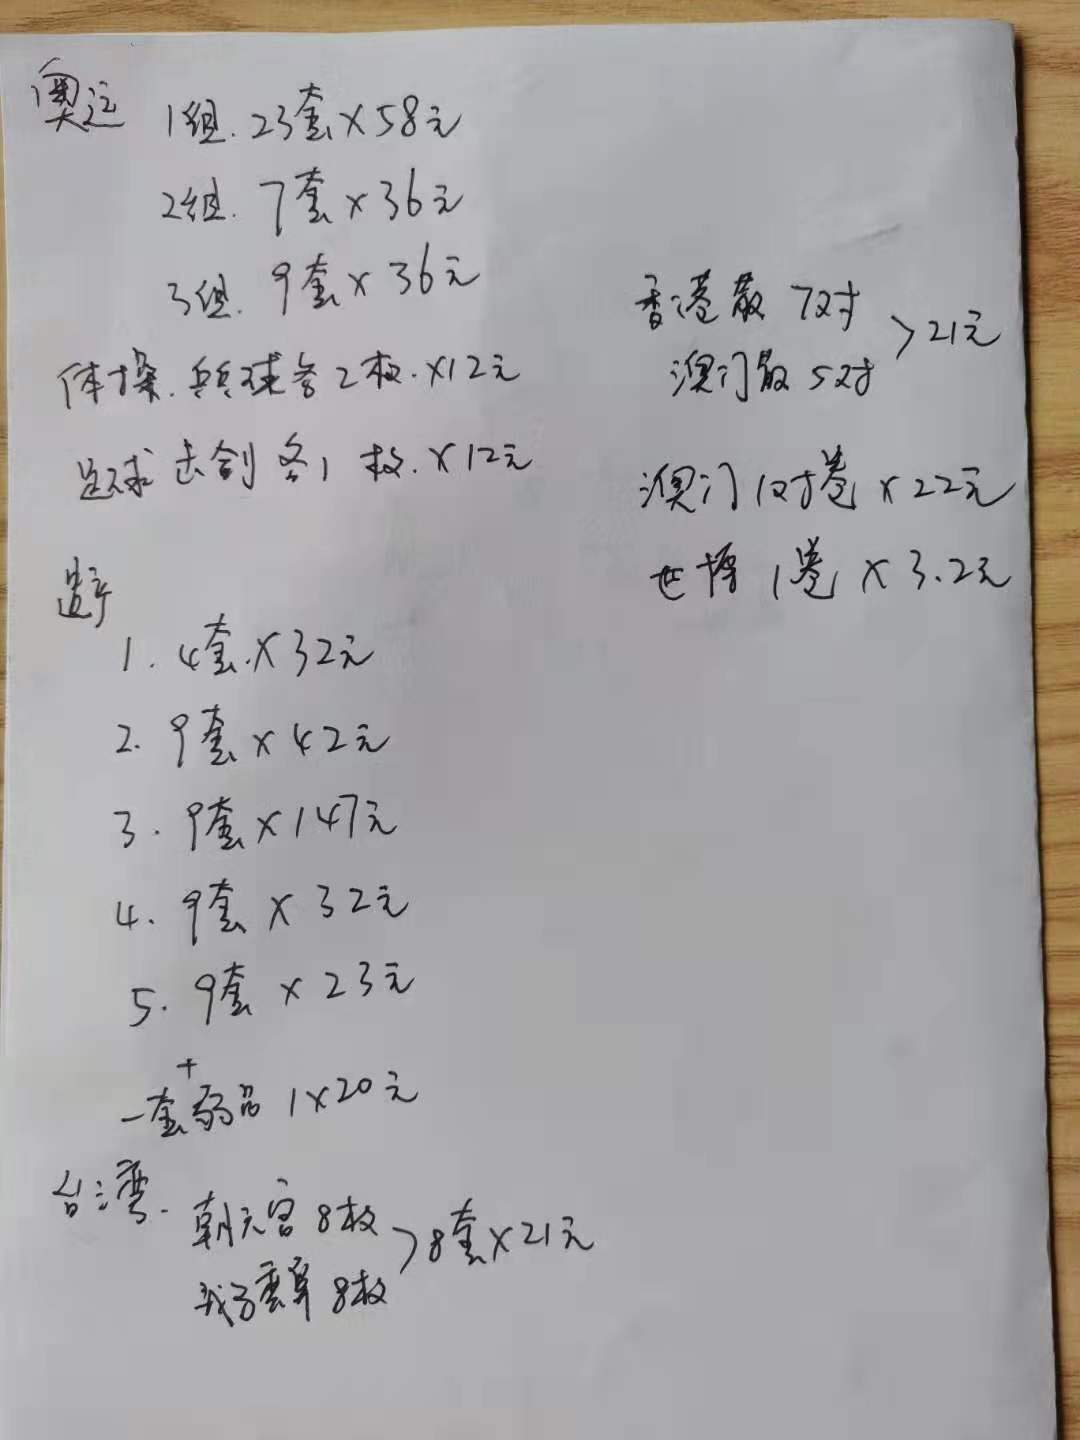 奥运
1组.23套×58元
2组.7套×36元
3组.9套×36元
体操.乒乓球各2枚.×12元
足球击剑各1枚.×12元
遗产
1.4套.×32元
2.9套×42元
3.9套×147元
4.9套×32元
5.9套×23元
+
一套弱品1×20元
台湾.
朝天宫8枚
8枚
>8套×21元
香港散7对
澳门散5对
>21元
澳门1对卷×22元
世博1卷×3.2元